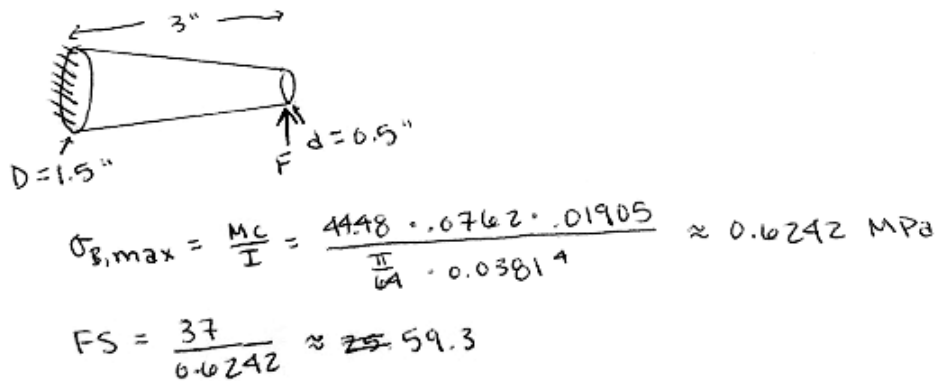 3"
D = 1.5"
F
d = 0.5"
σ_B,max = Mc/I = (44.48 · .0762 · .01905)/(π/64 · 0.0381⁴) ≈ 0.6242 MPa
FS = 37/0.6242 ≈ 59.3